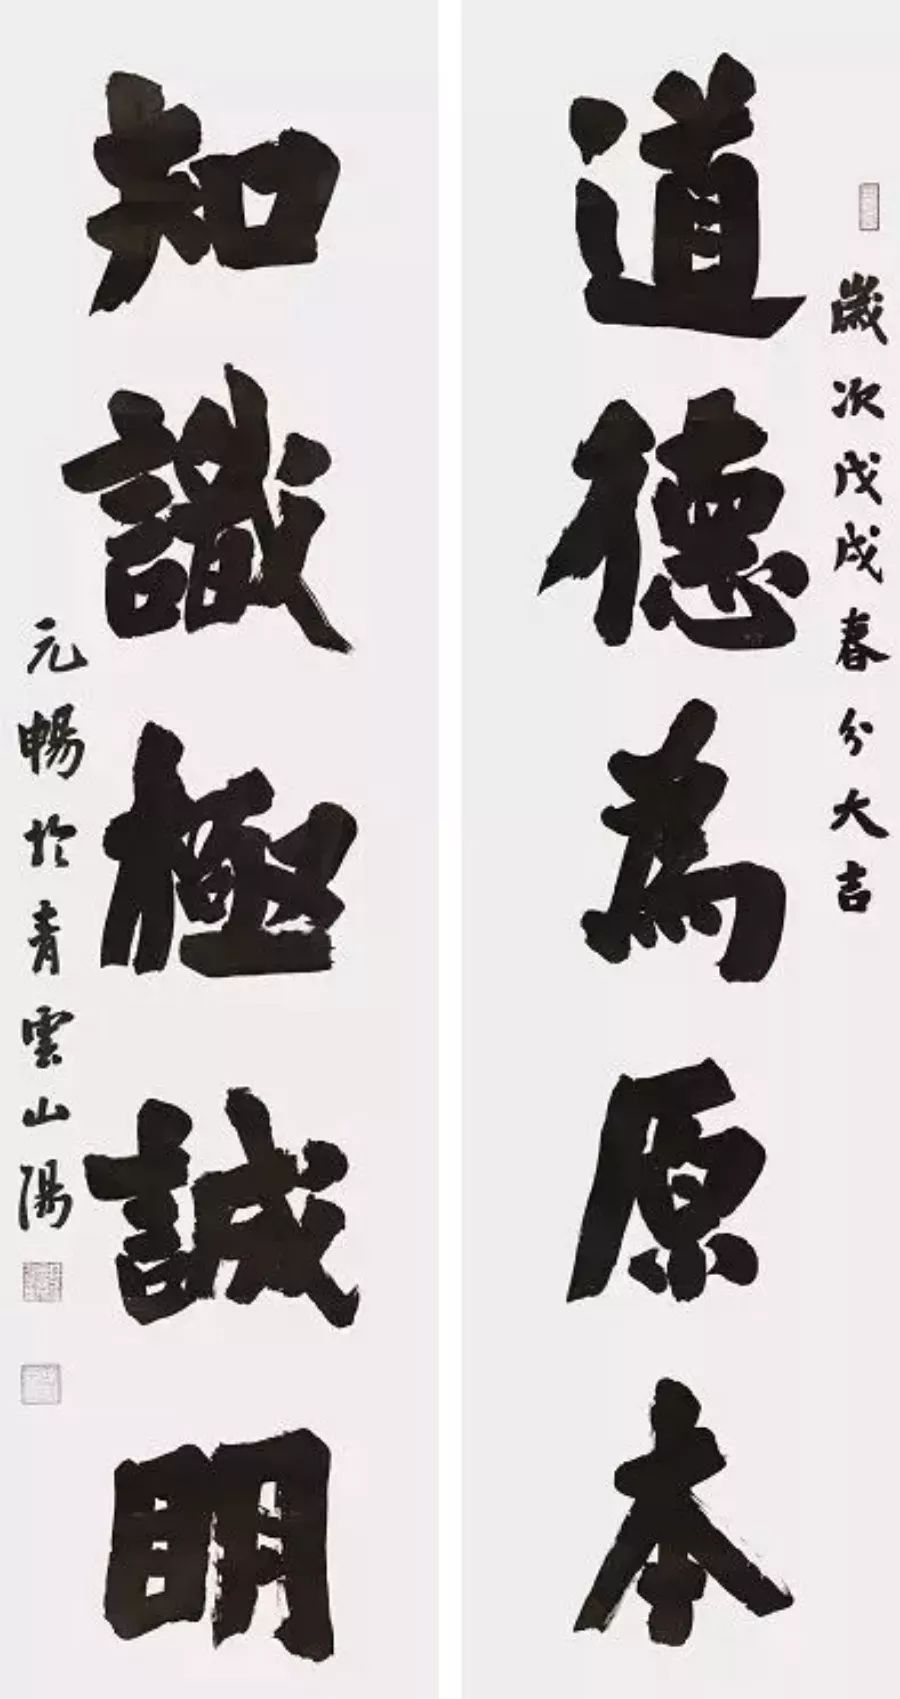 歲次戊戌春分大吉
道德為原本
知識極誠明
元暢於青雲山陽